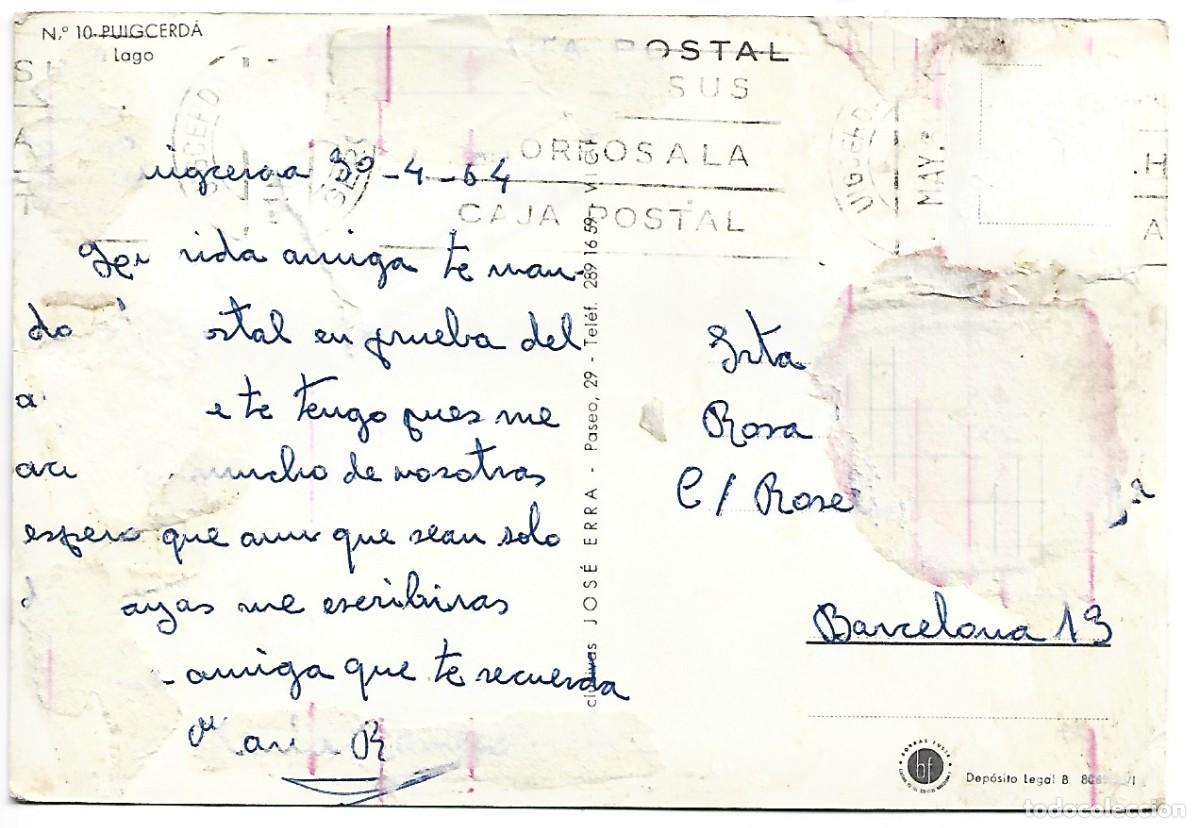 N.º 10 PUIGCERDÁ
Lago
POSTAL
SUS
A LA
CAJA POSTAL
MAY.
uigcerda 30-4-64
vida amiga te man-
do ostal en prueba del
a e te tengo pues me
mucho de nosotras
espero que aun que sean solo
ayas me escribiras
amiga que te recuerda
Maria R
clusivas JOSÉ ERRA - Paseo, 29 - Teléf. 289 16 59 - VICH
Srta
Rosa
C/ Rose
Barcelona 13
bf
Depósito Legal B.
todocoleccion